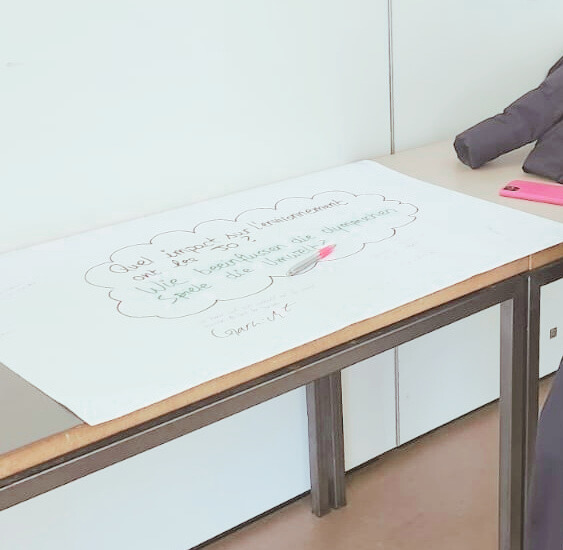 Quel impact sur l'environnement
ont les JO ?
Wie beeinflussen die olympischen
Spiele die Umwelt?